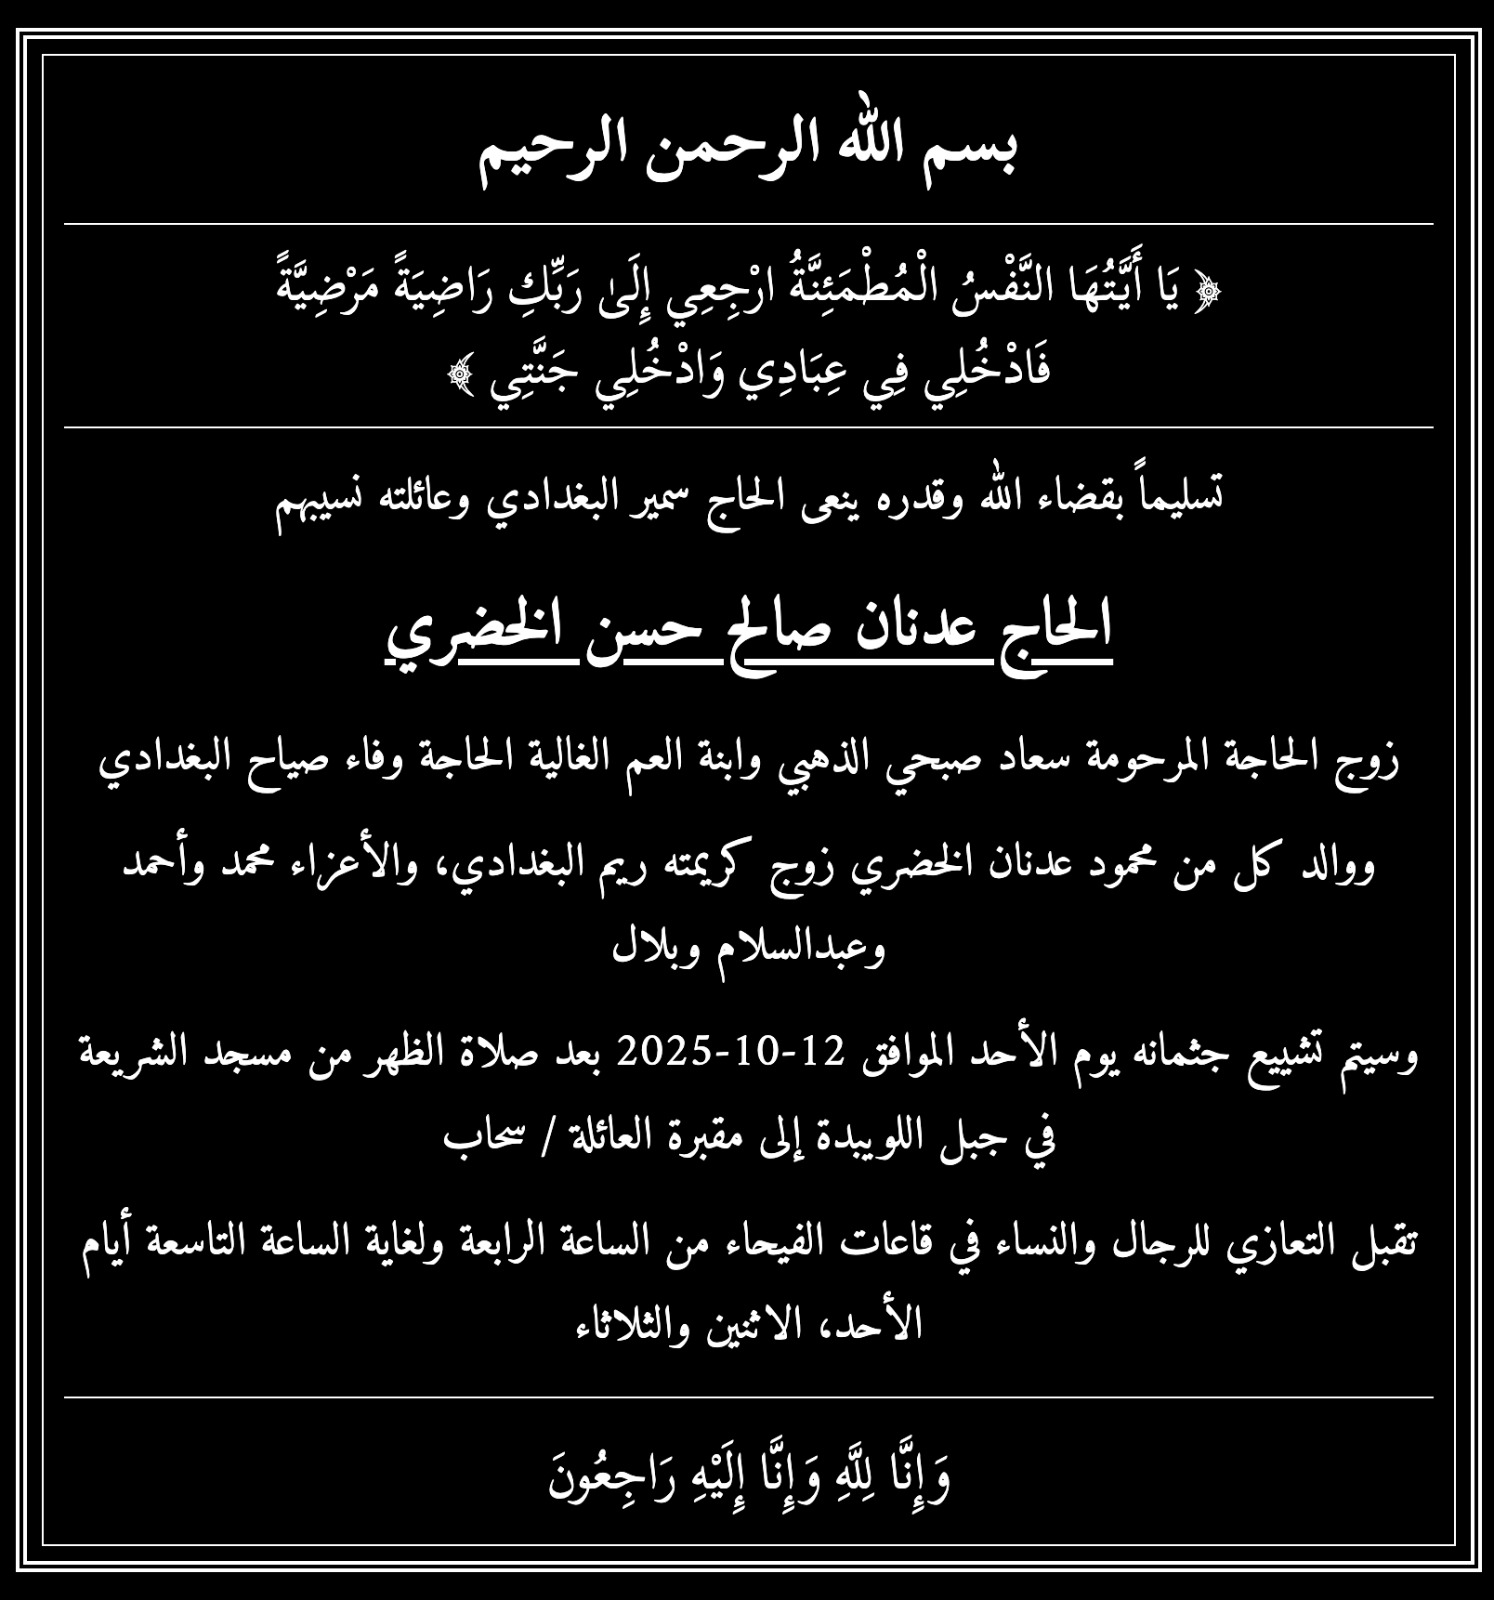 بسم الله الرحمن الرحيم
﴿ يَا أَيَّتُهَا النَّفْسُ الْمُطْمَئِنَّةُ ارْجِعِي إِلَىٰ رَبِّكِ رَاضِيَةً مَرْضِيَّةً
فَادْخُلِي فِي عِبَادِي وَادْخُلِي جَنَّتِي ﴾
تسليماً بقضاء الله وقدره ينعى الحاج سمير البغدادي وعائلته نسيبهم
الحاج عدنان صالح حسن الخضري
زوج الحاجة المرحومة سعاد صبحي الذهبي وابنة العم الغالية الحاجة وفاء صياح البغدادي
ووالد كل من محمود عدنان الخضري زوج كريمته ريم البغدادي، والأعزاء محمد وأحمد
وعبدالسلام وبلال
وسيتم تشييع جثمانه يوم الأحد الموافق 12-10-2025 بعد صلاة الظهر من مسجد الشريعة
في جبل اللويبدة إلى مقبرة العائلة / سحاب
تقبل التعازي للرجال والنساء في قاعات الفيحاء من الساعة الرابعة ولغاية الساعة التاسعة أيام
الأحد، الاثنين والثلاثاء
وَإِنَّا لِلَّهِ وَإِنَّا إِلَيْهِ رَاجِعُونَ